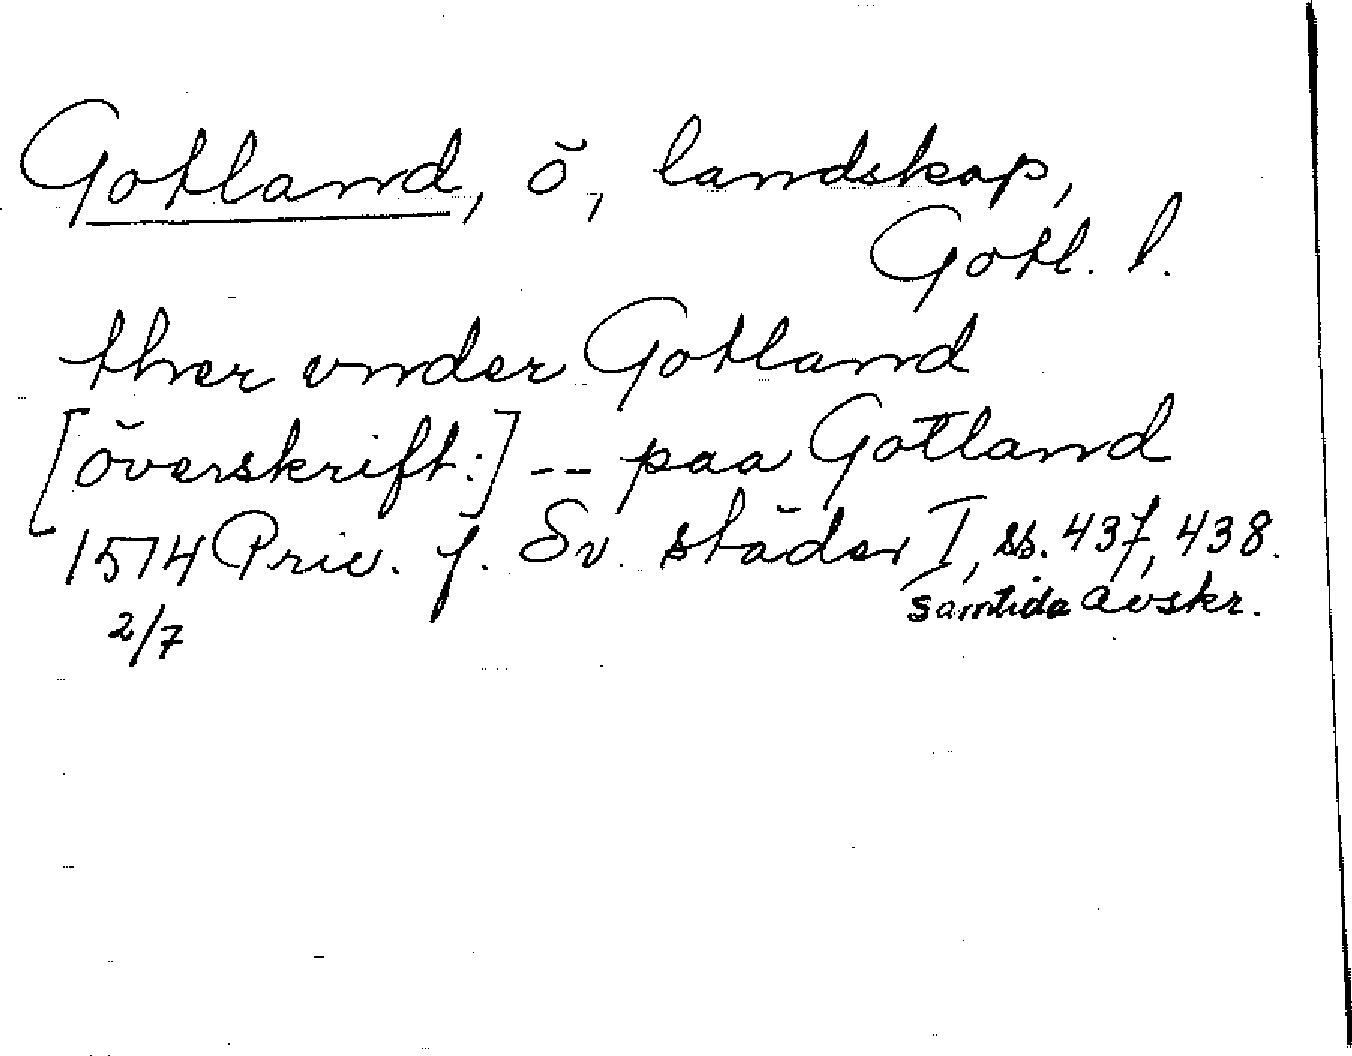 Gotland, ö, landskap,
Gotl. l.
ther vnder Gotland
[överskrift:] -- paa Gotland
1574 Priv. f. Sv. städer I, ss. 437, 438.
samtida avskr.
2/7